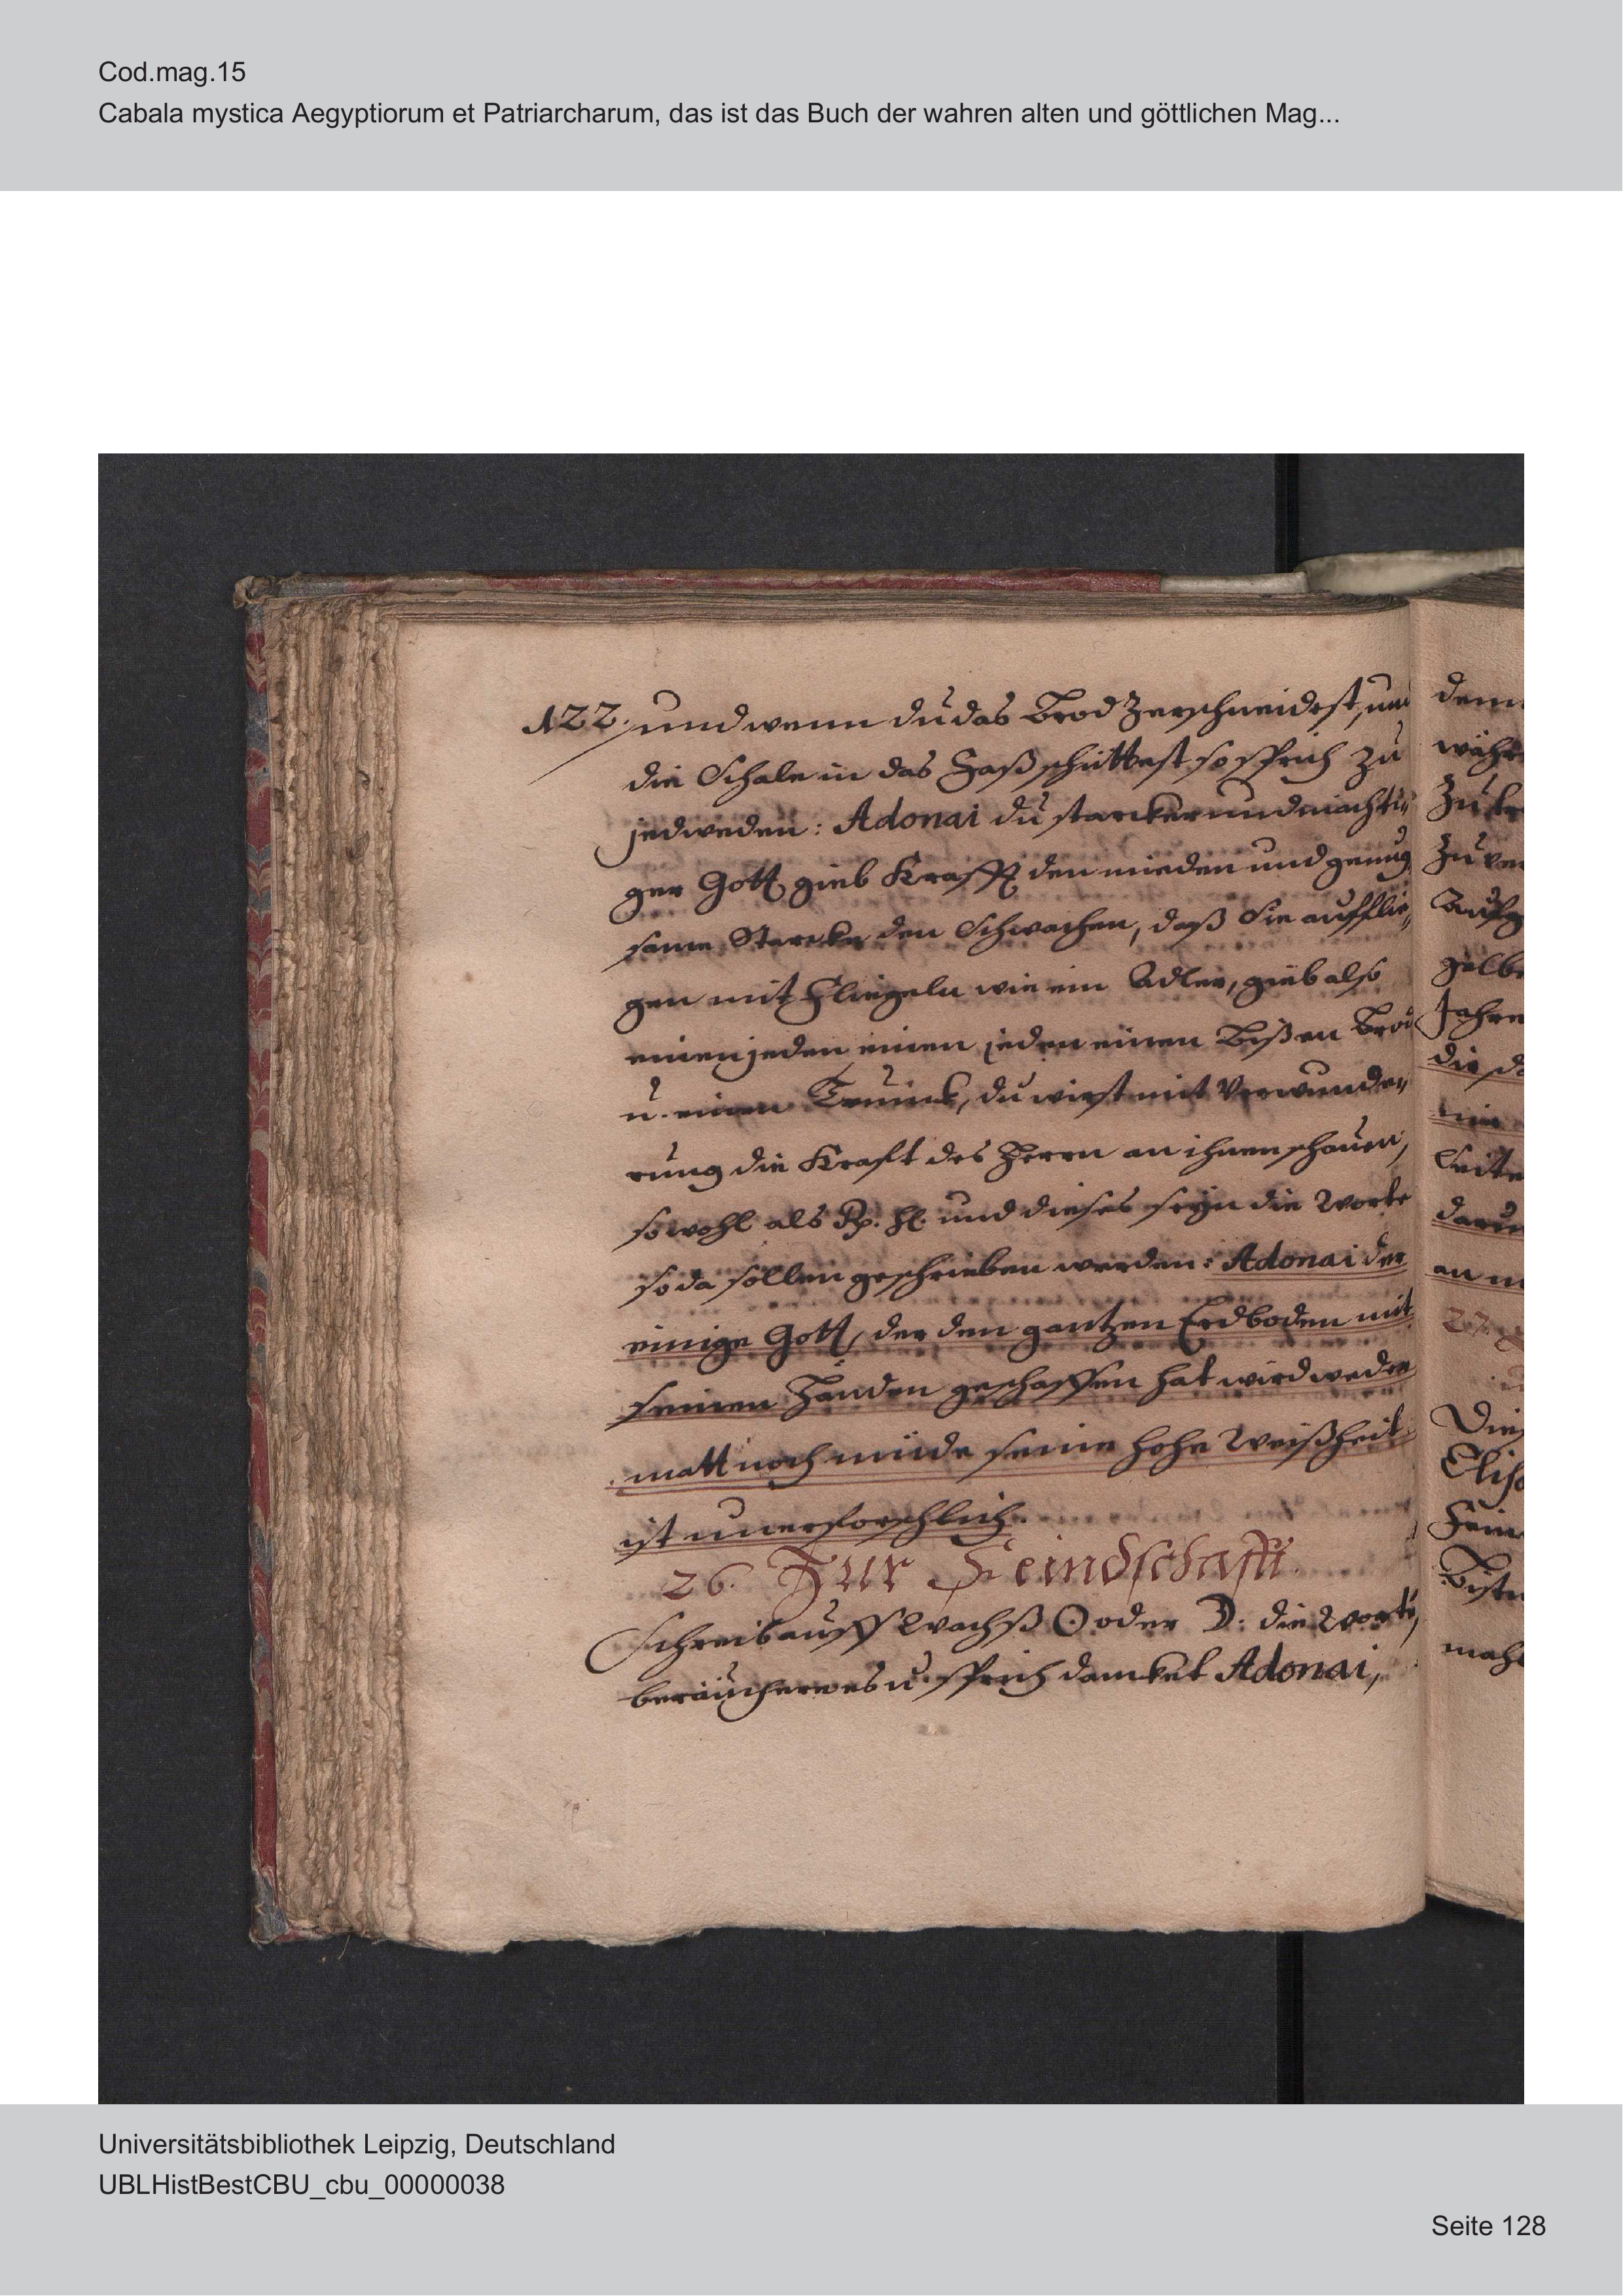 Cod.mag.15
Cabala mystica Aegyptiorum et Patriarcharum, das ist das Buch der wahren alten und göttlichen Mag...
122. und wenn du das Brod zerschneidest, und
die Schale in das Faß schüttest so sprich zu
jedweden: Adonai du starcker und mächti„
ger Gott gieb Krafft den mieden und genug
same Starcke den Schwachen, daß Sie aufflie„
gen mit Fliegeln wie ein Adler, gieb also
einen jeden einen jeden einen Bißen Brod
u. einen Trunck, du wirst mit Verwunde„
rung die Kraft des Herrn an ihnen schauen,
sowohl als Rp. Hl. und dieses seyn die Worte
so da sollen geschrieben werden: Adonai der
einige Gott, der den gantzen Erdboden mit
seinen Händen geschaffen hat wird weder
matt noch müde seine hohe Weißheit
ist unerforschlich.
26. Zur Feindschafft.
Schreib auff Wachß ☉ oder ☽: die Worte,
beräuchere es u. sprich damkel Adonai,
dem
währ
zu
zu ver
gelbe
Jahre
die
Seite
daru
an
27.
Dies
Elis
Fein
mahl
Universitätsbibliothek Leipzig, Deutschland
UBLHistBestCBU_cbu_00000038
Seite 128